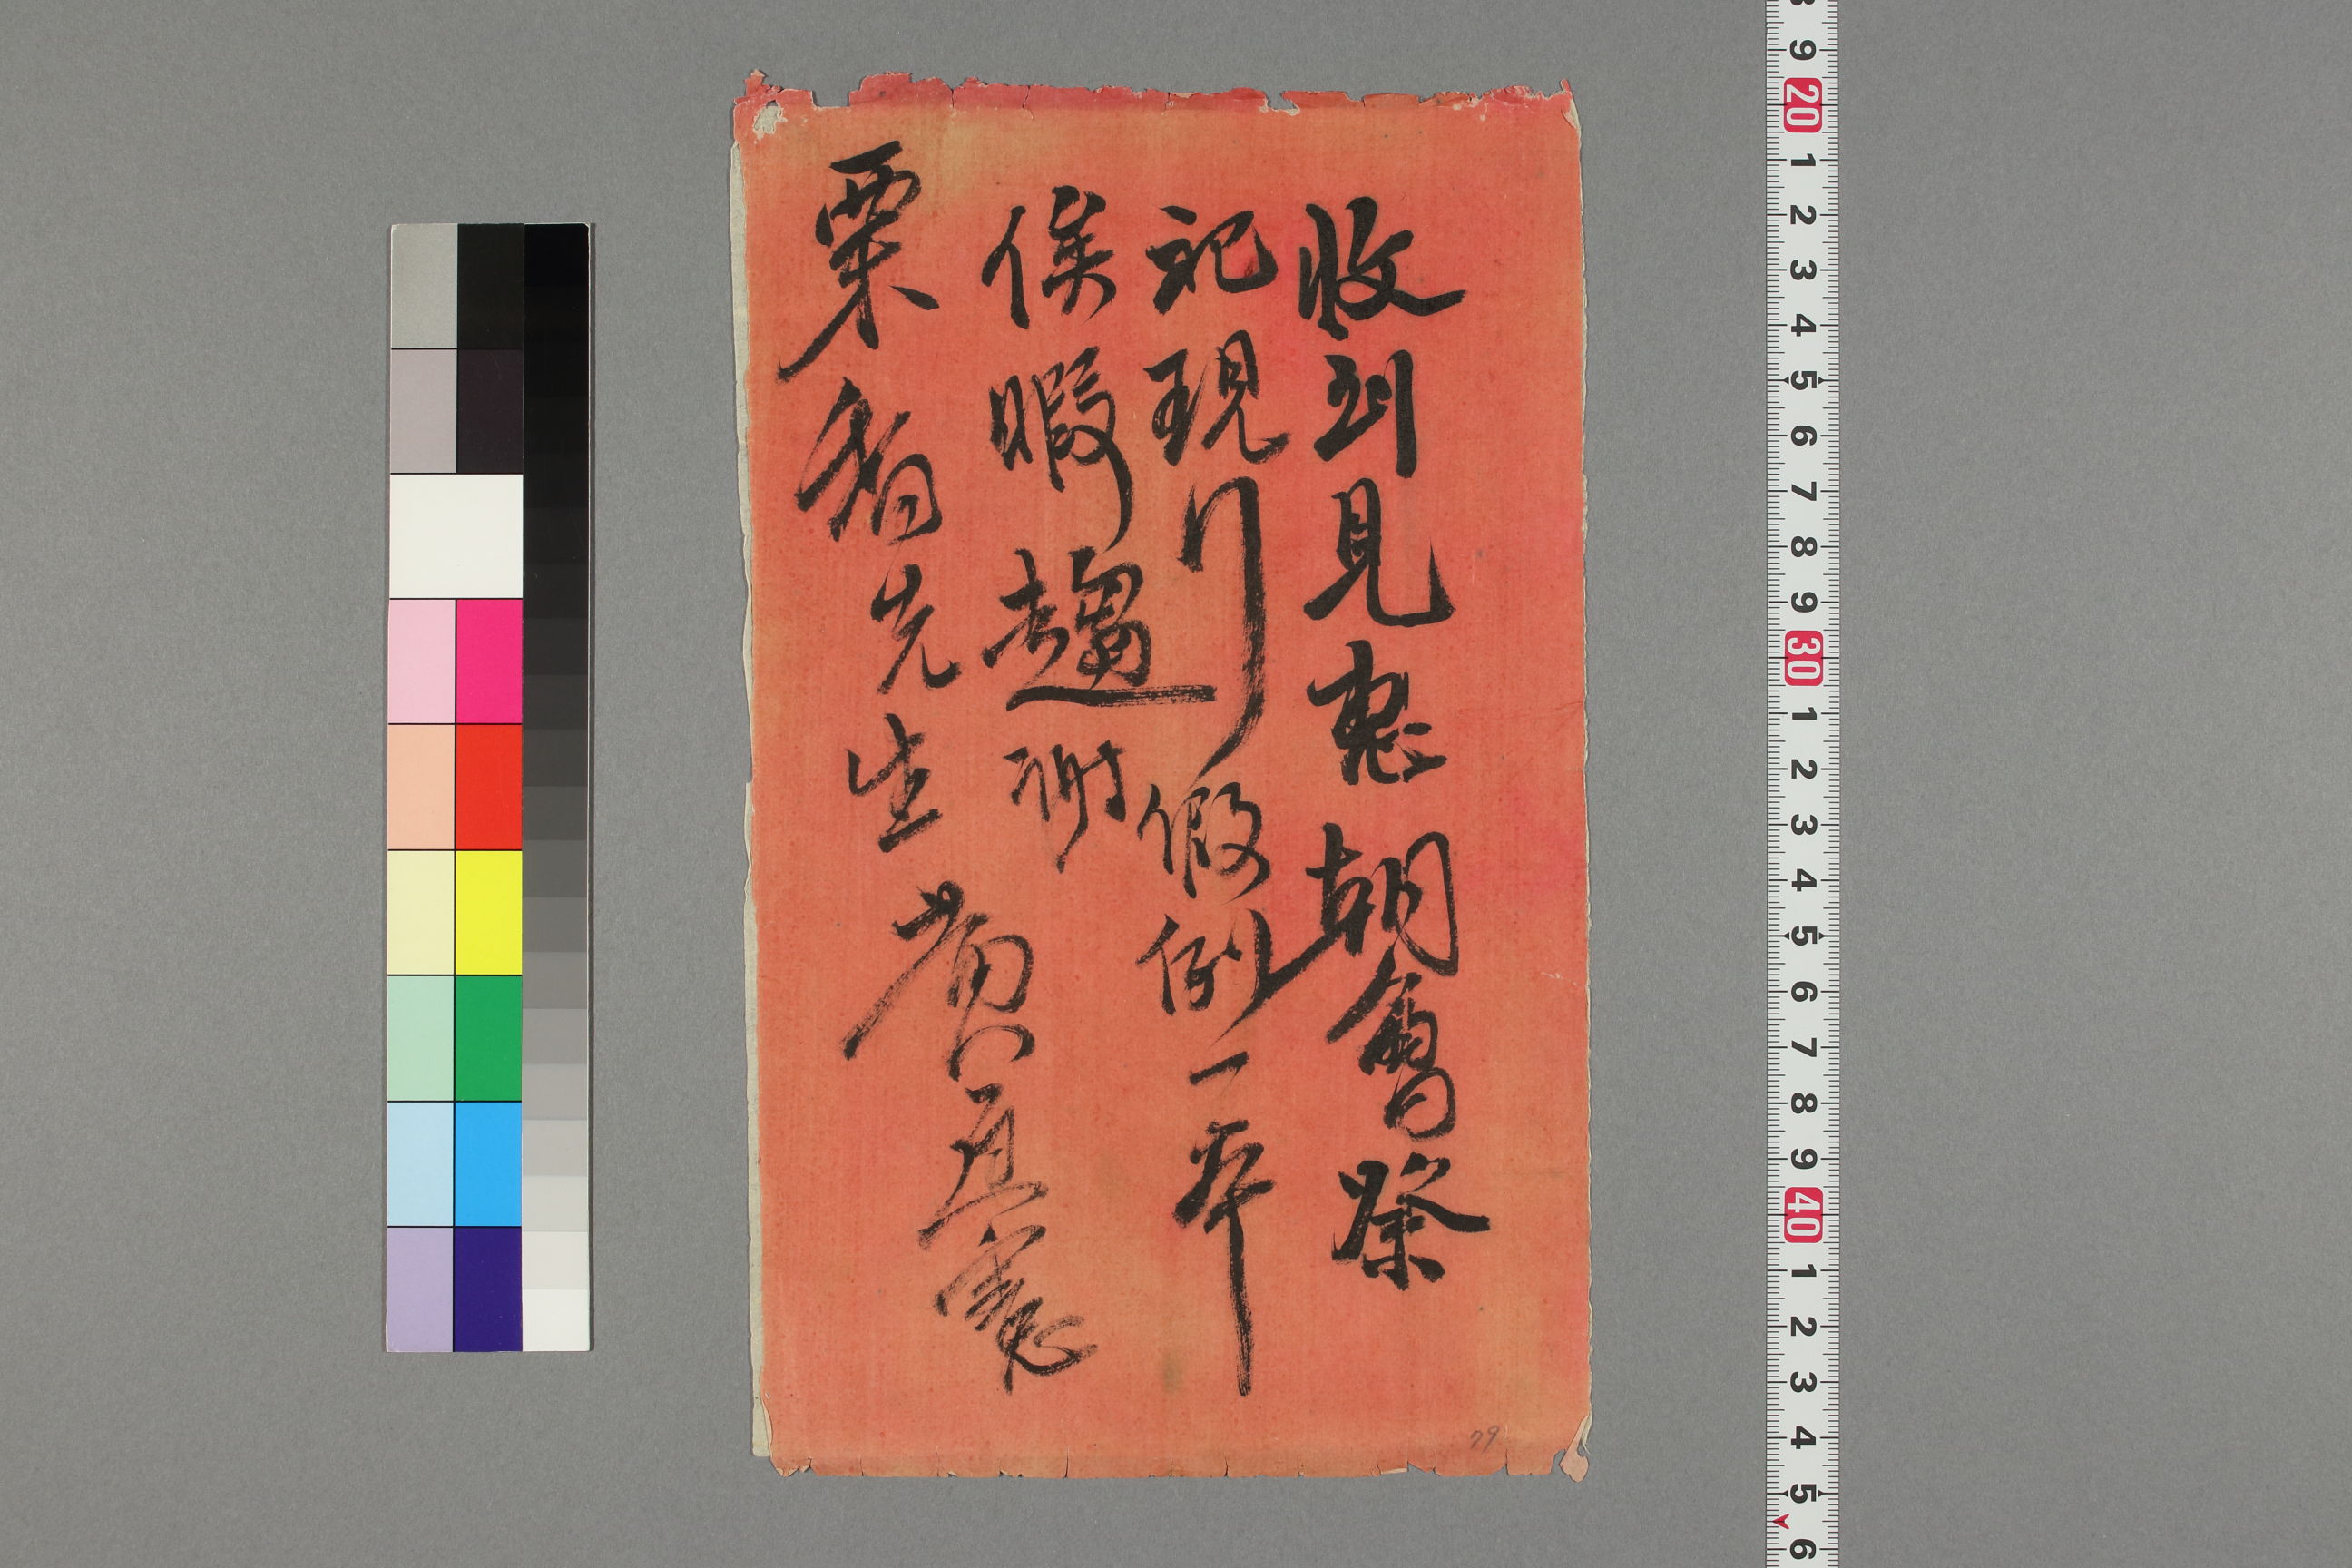 收到見惠朝會祭
祀現行假例一本
俟暇趨謝
栗香先生 黃遵憲
79
9 20 1 2 3 4 5 6 7 8 9 30 1 2 3 4 5 6 7 8 9 40 1 2 3 4 5 6